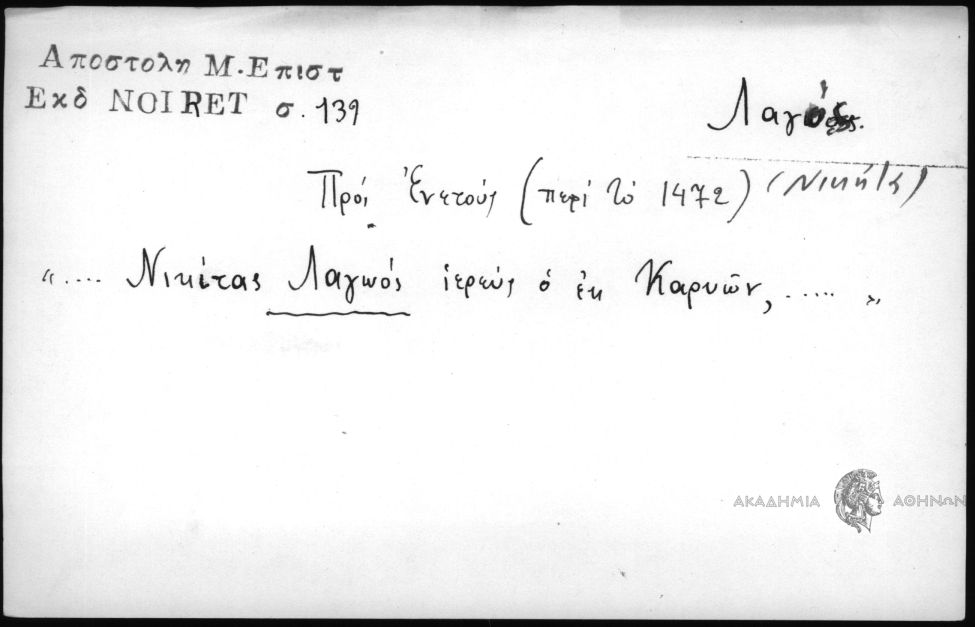 Αποστολη Μ. Επιστ
Εκδ NOIRET σ. 139
Λαγός
Πρός Ἑνετούς (περί τό 1472) (Νικήτα)
“.... Νικήτας Λαγωός ἱερεύς ὁ ἐκ Καρυῶν, ..... „
ΑΚΑΔΗΜΙΑ ΑΘΗΝΩΝ